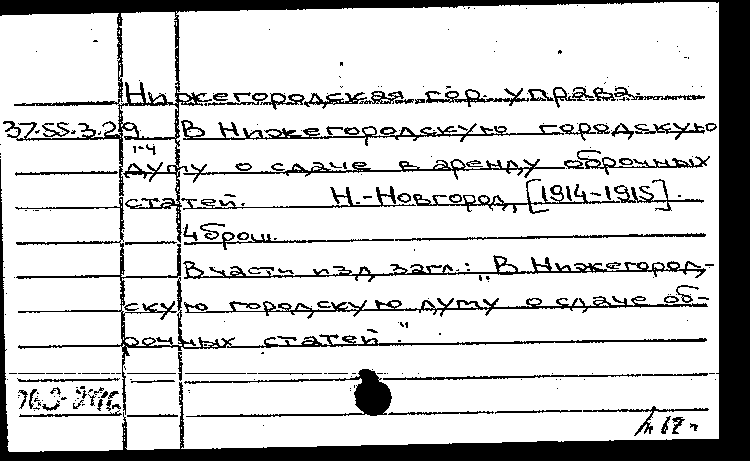 Нижегородская гор. управа.
37.55.3.29 В Нижегородскую городскую
1-4
думу о сдаче в аренду оброчных
статей. Н.-Новгород, [1914-1915].
4 брош.
В части изд. загл.: "В Нижегород-
скую городскую думу о сдаче об-
рочных статей."